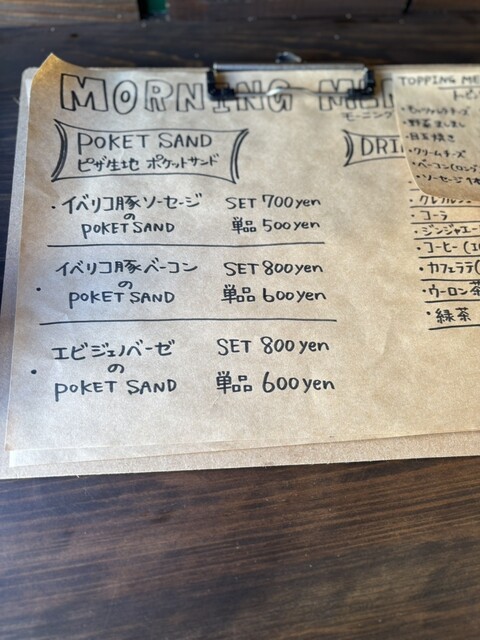 MORNING ME
モーニング
POKET SAND
ピザ生地 ポケットサンド
・イベリコ豚ソーセージ
の
POKET SAND
SET 700yen
単品 500yen
・イベリコ豚ベーコン
の
POKET SAND
SET 800yen
単品 600yen
・エビジェノベーゼ
の
POKET SAND
SET 800yen
単品 600yen
TOPPING ME
・モッツァレラチーズ
・野菜マシマシ
・目玉焼き
・クリームチーズ
・ベーコン(ロング
・ソーセージ1本
DRI
・コーラ
・ジンジャエー
・コーヒー(I
・カフェラテ(
・ウーロン茶
・緑茶